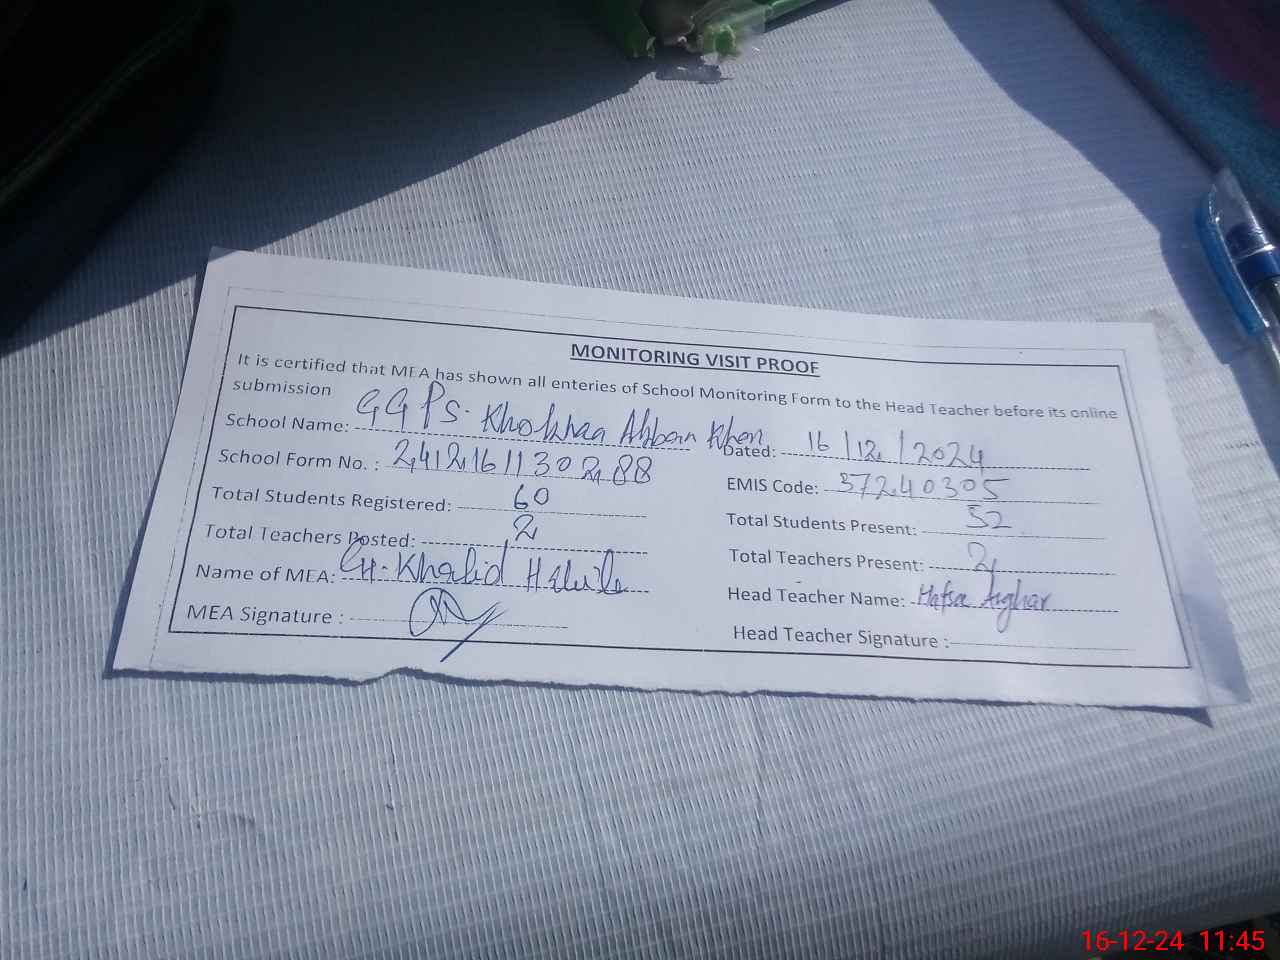 MONITORING VISIT PROOF
It is certified that MEA has shown all enteries of School Monitoring Form to the Head Teacher before its online
submission
School Name: GGPS. Khokhaa Ahban Khan Dated: 16/12/2024
School Form No. : 2412161130288 EMIS Code: 37240305
Total Students Registered: 60 Total Students Present: 52
Total Teachers Posted: 2 Total Teachers Present: 2
Name of MEA: CH. Khalid Head Teacher Name: Hafsa Asghar
MEA Signature : Head Teacher Signature :
16-12-24 11:45